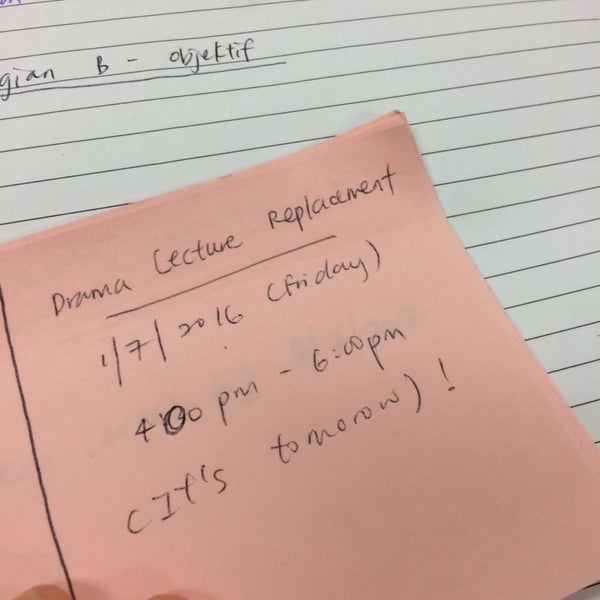 gian B - objektif
Drama Lecture Replacement
1/7/2016 (Friday)
400 pm - 6:00pm
(It's tomorow) !